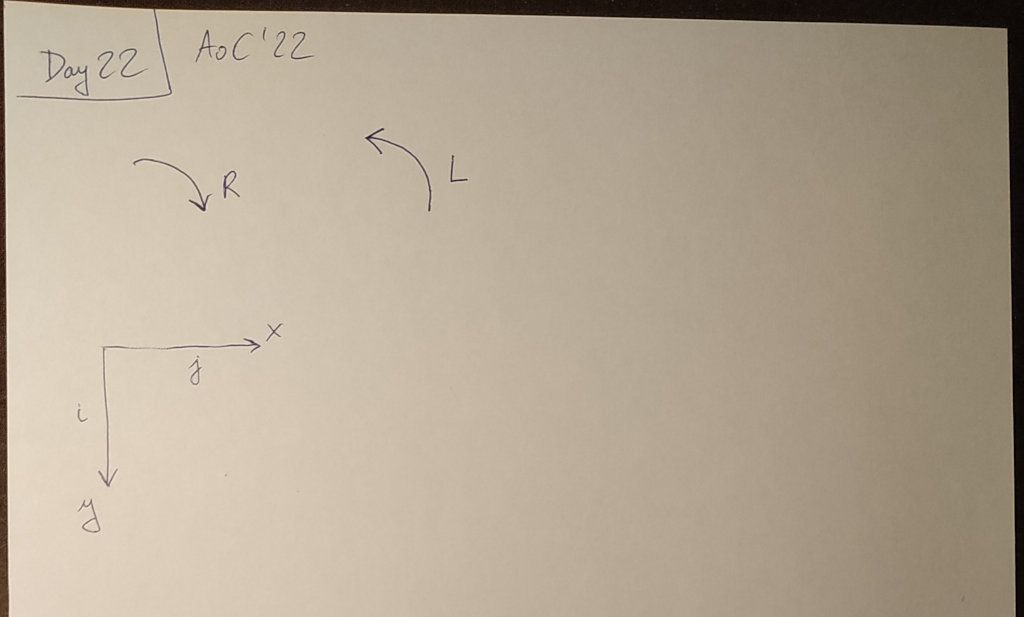 Day 22
AoC'22
R
L
x
j
i
y